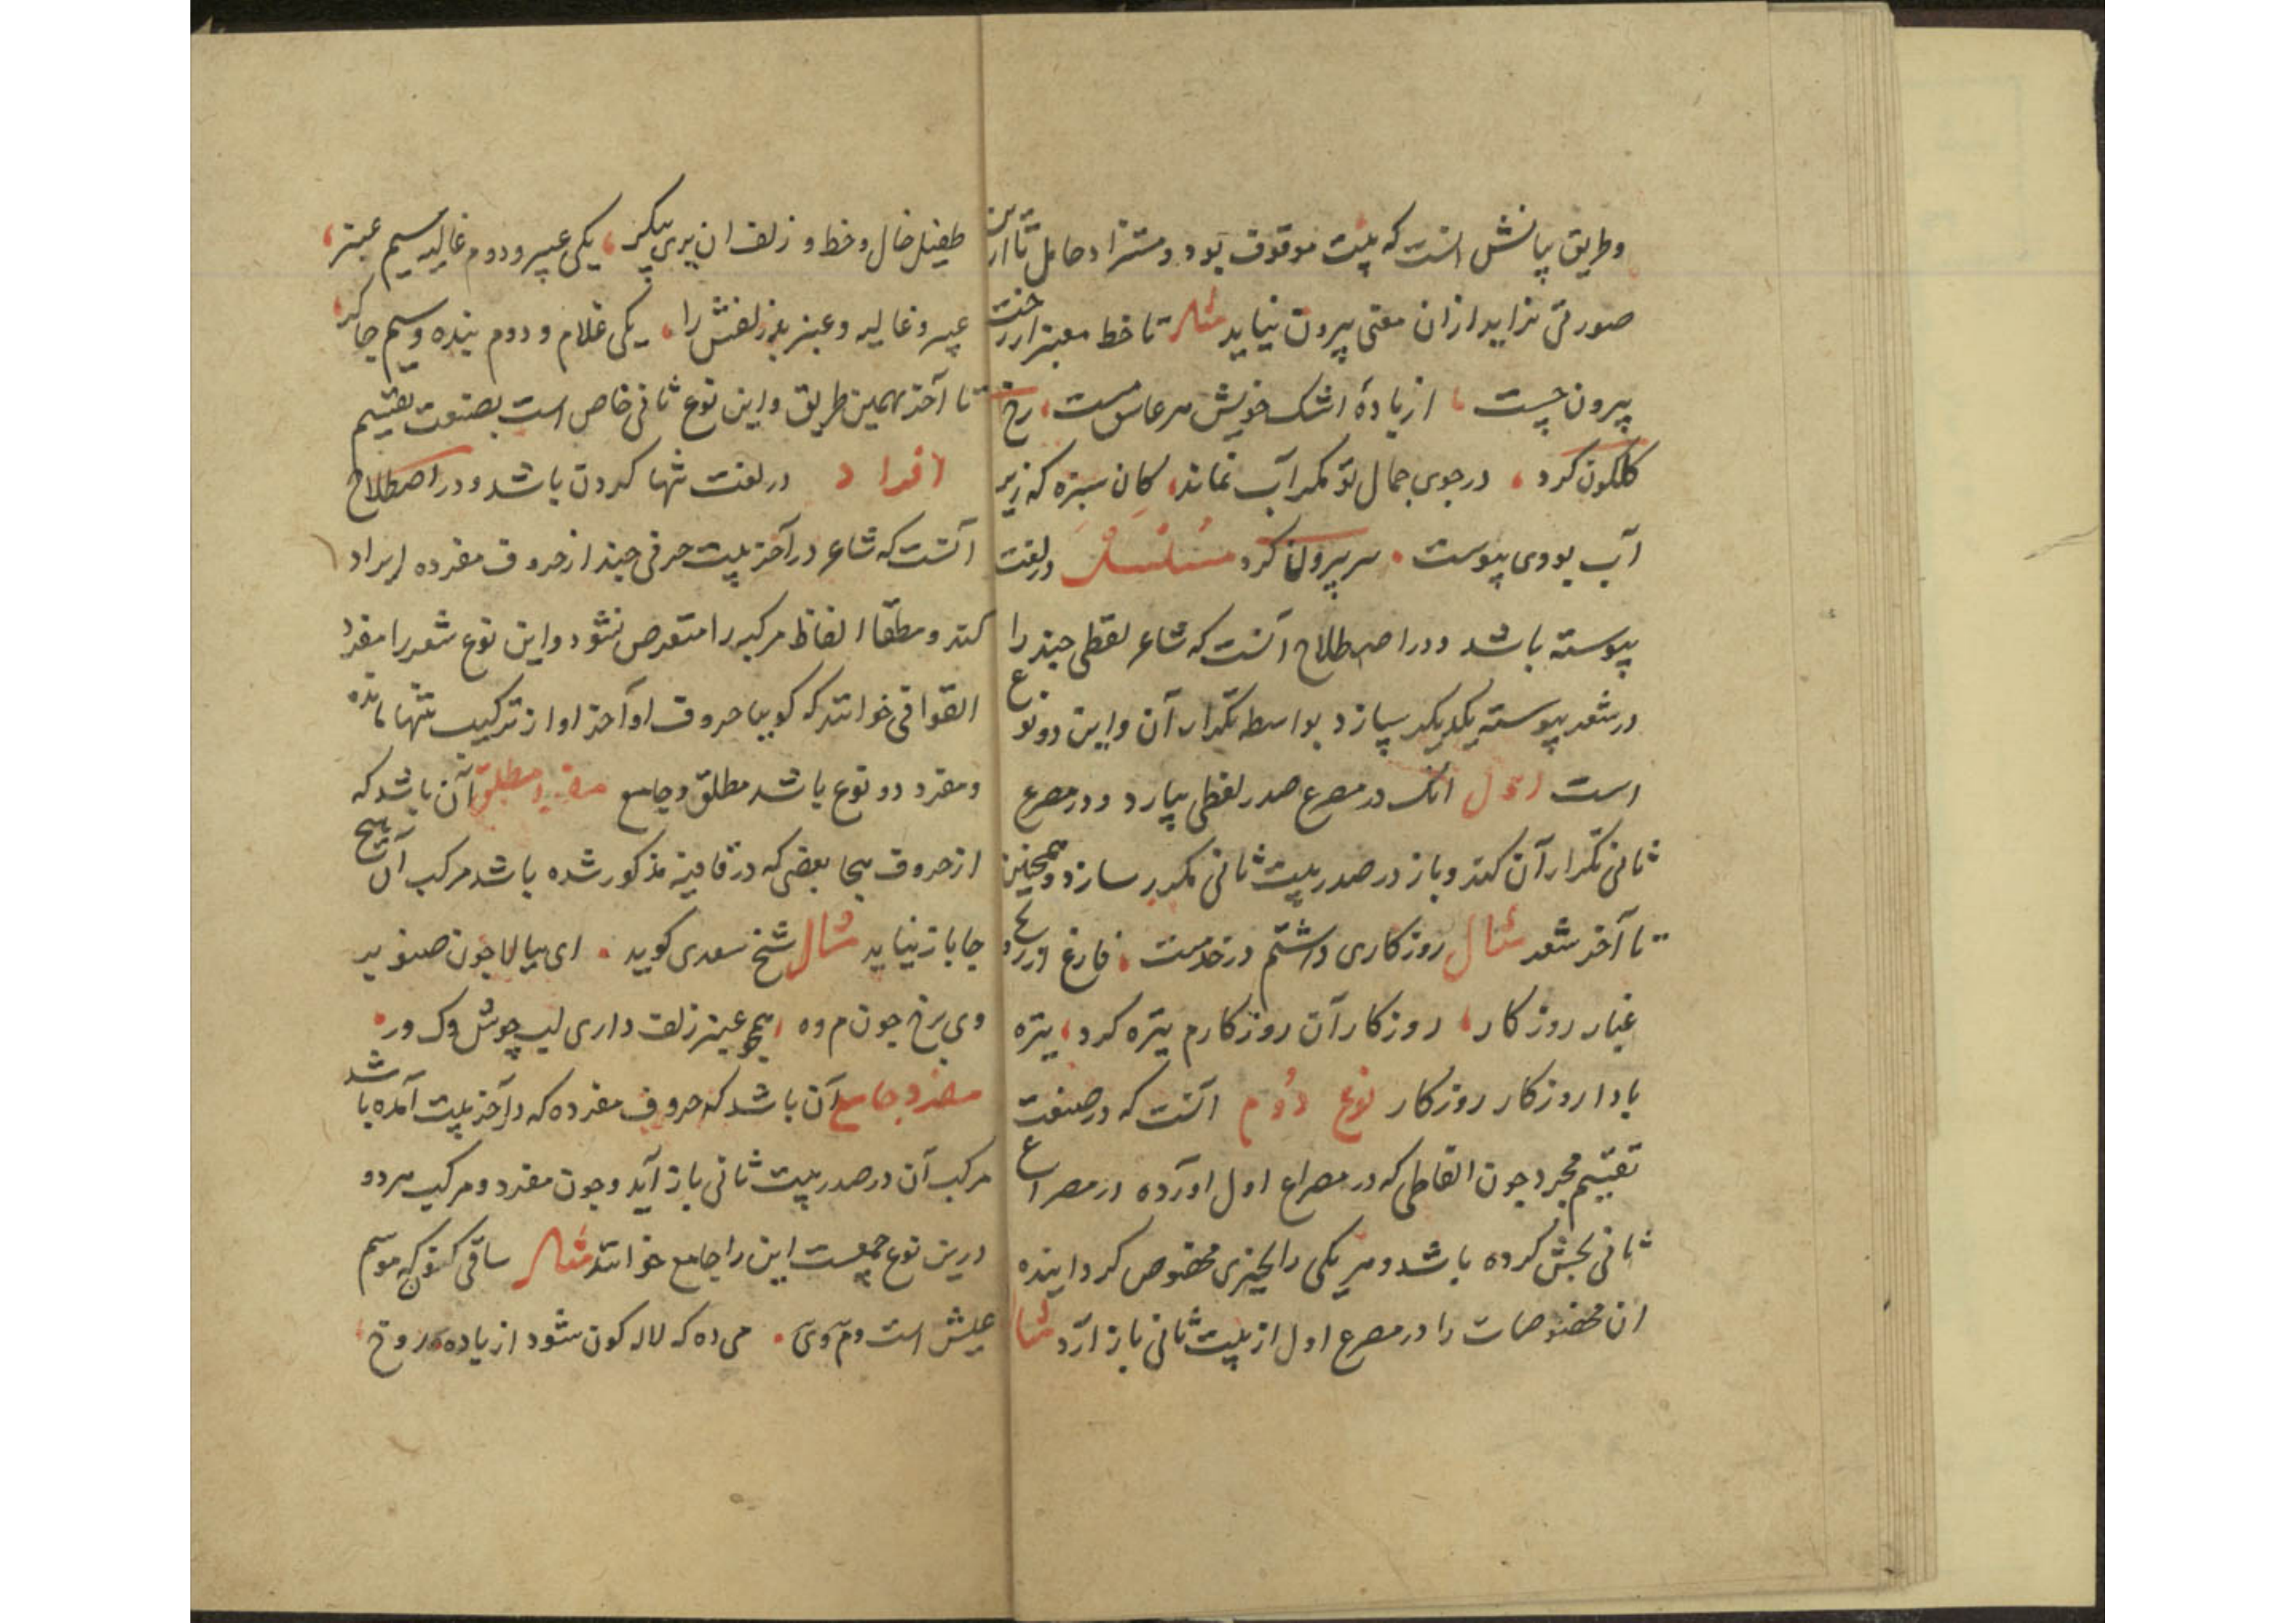 وطریق پیانش انست که بیت موقوف بود و مستزاد حامل تا ازین
صورتی نزاید ازان معنی بیرون نیاید مثال تا خط معنبر از رخت
بیرون جست ، از بادهٔ اشک خویش هر عاشق مست ، رخ
کلکون کرد ، در جوی جمال تو مکر آب نماند ، کان سبزه که زیر
آب بودی پیوست . سر بیرون کرد مسلسل در لغت
پیوسته باشد و در اصطلاح آنست که شاعر لفظی چند را
در شعر پیوسته یکدیکر سازد بواسطه تکرار آن واین دو نوع
است اول انک در مصرع صدر لفظی بیارد و در مصرع
ثانی تکرار آن کند و باز در صدر بیت ثانی مکرر سازد و همچنین
تا آخر شعر مثال روزکاری داشتم در خدمتت ، فارغ از کرد
غبار روزکار ، روزکار آن روزکارم تیره کرد ، تیره
بادا روزکار روزکار نوع دوم آنست که در صنعت
تقسیم مجرد چون الفاظی که در مصراع اول اورده در مصراع
ثانی بخش کرده باشد و هر یکی را بچیزی مخصوص کردانیده
ان مخصوصات را در مصرع اول از بیت ثانی باز آرد مثال
طفیل خال و خط و زلف ان پری پیکر ، یکی عبیر و دوم غالیه سیم عنبر ،
عبیر و غالیه و عنبرند زلفش را ، یکی غلام و دوم بنده و سیم چاکر ،
تا آخر بهمین طریق واین نوع ثانی خاص است بصنعت تقسیم
افراد در لغت تنها کردن باشد و در اصطلاح
آنست که شاعر در آخر بیت حرفی چند از حروف مفرده ایراد
کند و مطلقا الفاظ مرکبه را متعرض نشود واین نوع شعر را مفرد
القوافی خوانند که کوییا حروف اواخر او از ترکیب تنها مانده
ومفرد دو نوع باشد مطلق و جامع مفرد مطلق آن باشد که
از حروف هجا بعضی که در قافیه مذکور شده باشد مرکب آن هیچ
جا باز نیاید مثال شیخ سعدی کوید . ای ببالا چون صنوبر
وی برخ چون م و ه ، همچو عنبر زلف داری لب چو ش و ک و ر .
مفرد جامع آن باشد که حروف مفرده که در آخر بیت آمده باشد
مرکب آن در صدر بیت ثانی باز آید و چون مفرد و مرکب هر دو
درین نوع جمعست این را جامع خوانند مثال ساقی کنون که موسم
عیش است و م و ی . می ده که لاله کون شود از باده ر و خ ،